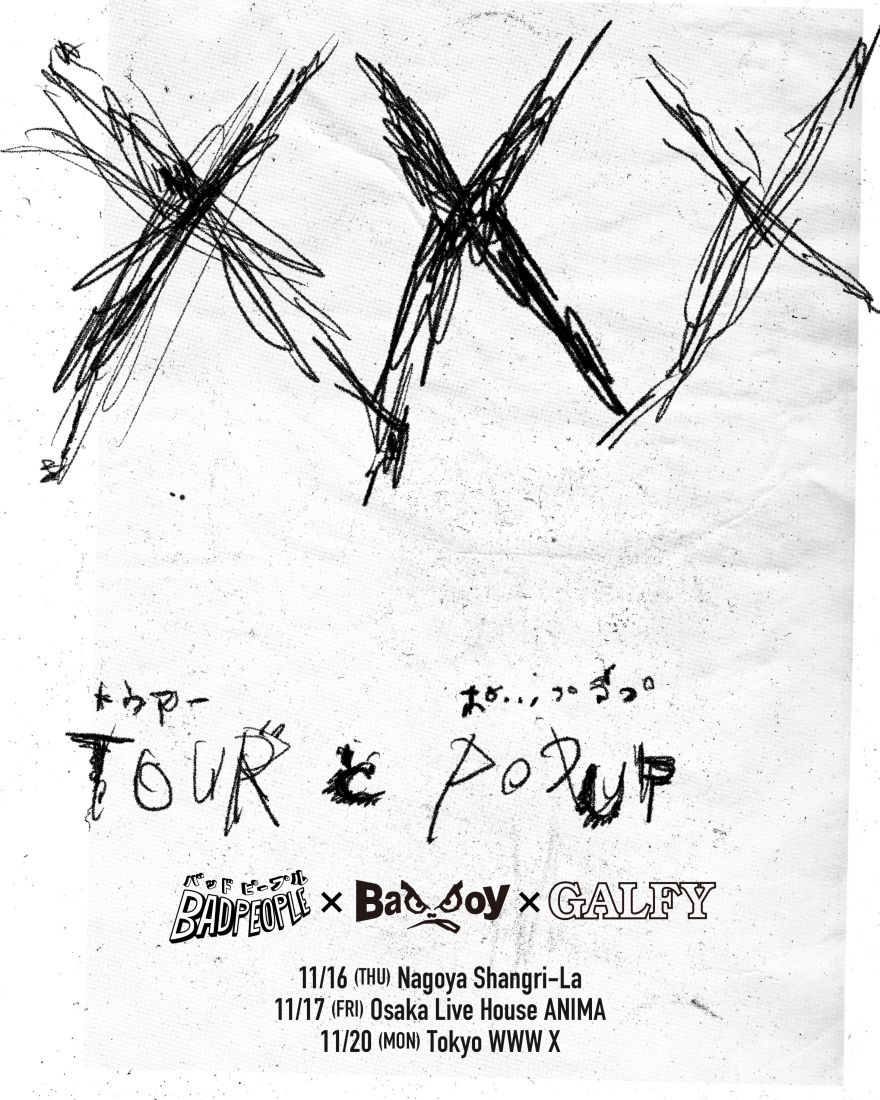 XXX
トゥアー
TOUR と POPUP
バッド ピープル
BADPEOPLE × BadBoy × GALFY
11/16 (THU) Nagoya Shangri-La
11/17 (FRI) Osaka Live House ANIMA
11/20 (MON) Tokyo WWW X